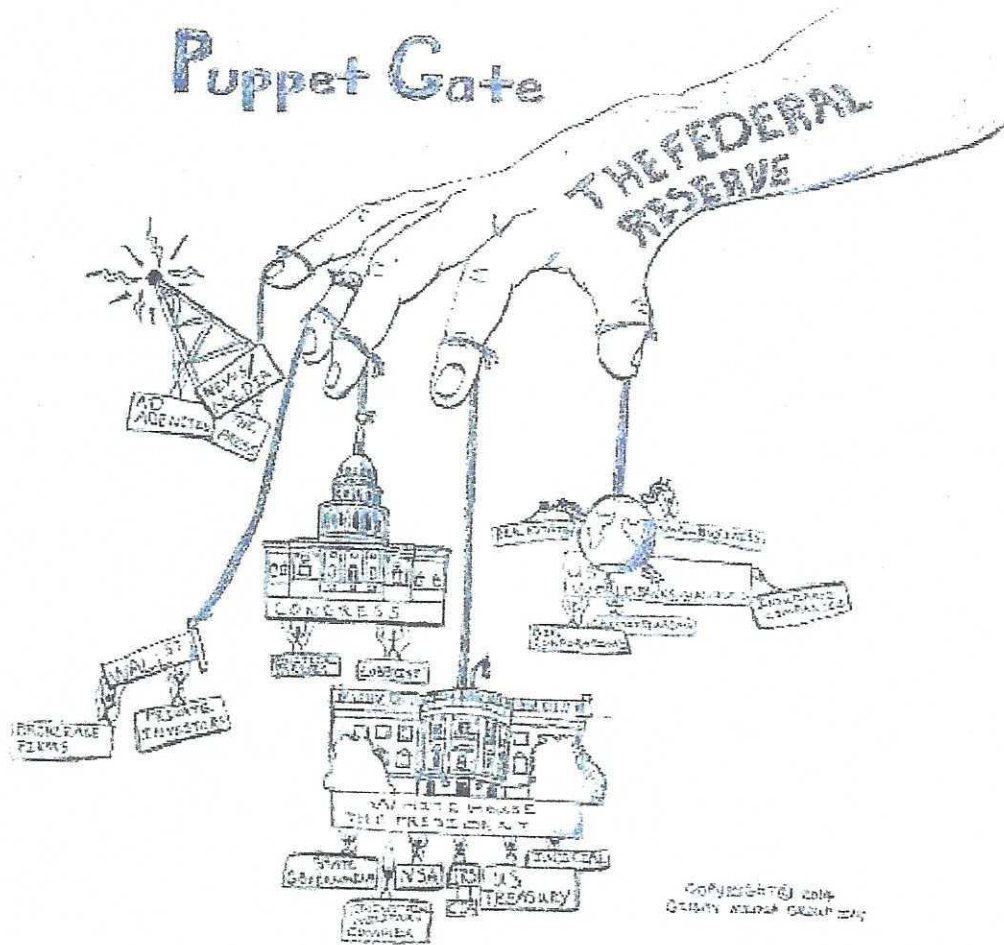 Puppet Gate
THE FEDERAL
RESERVE
NEWS
MEDIA
AD
AGENCIES
THE
PRESS
CONGRESS
LOBBIST
WALL ST
BROKERAGE
FIRMS
PRIVATE
INVESTORS
REAL ESTATE
BUSINESS
INSURANCE
COMPANIES
BIG
CORPORATIONS
WHITE HOUSE
THE PRESIDENT
STATE
GOVERNMENT
NSA
IRS
CIA
U.S
TREASURY
JUDICIAL
COMPLEX
COPYRIGHT©
MEDIA GROUP INC